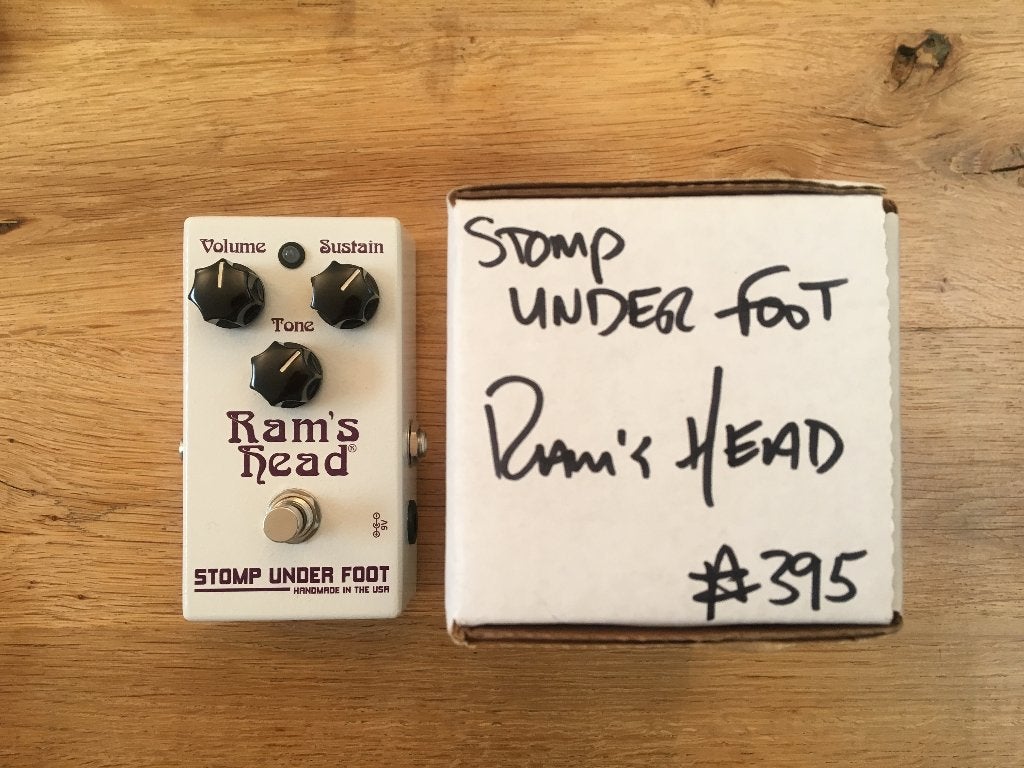 Volume Sustain
Tone
Ram's
head®
9V
STOMP UNDER FOOT
HANDMADE IN THE USA
STOMP
UNDER FOOT
RAM's HEAD
#395